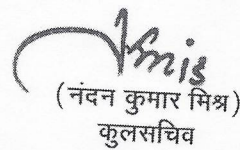 (नंदन कुमार मिश्र)
कुलसचिव